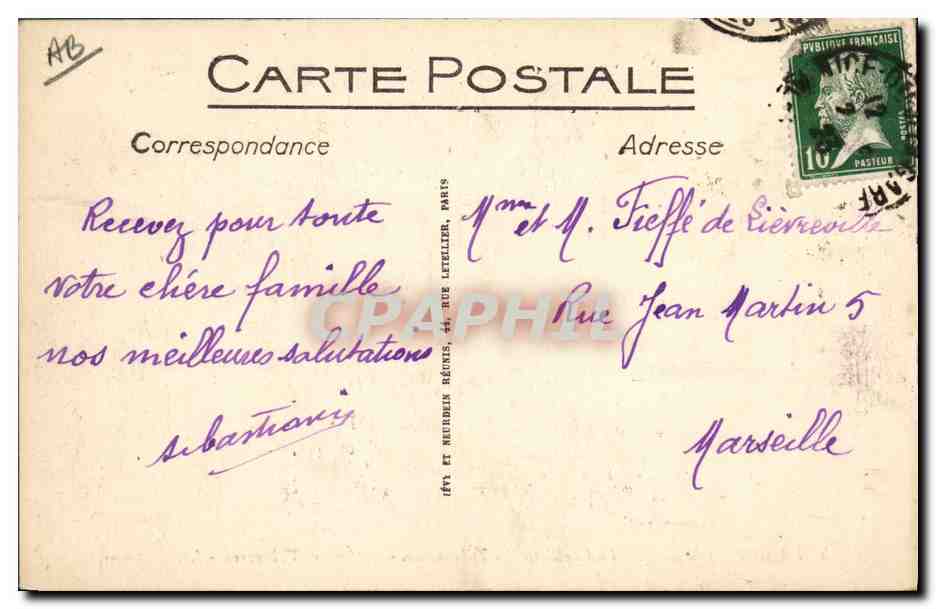 AB
CARTE POSTALE
Correspondance
Adresse
RÉPUBLIQUE FRANÇAISE
POSTES
10
PASTEUR
NICE
GARE
Recevez pour toute
votre chére famille
nos meilleures salutations
Mme et M. Fieffé de Lièvreville
Rue Jean Martin 5
Marseille
LÉVY ET NEURDEIN RÉUNIS, 44, RUE LETELLIER, PARIS
CPAPHIL